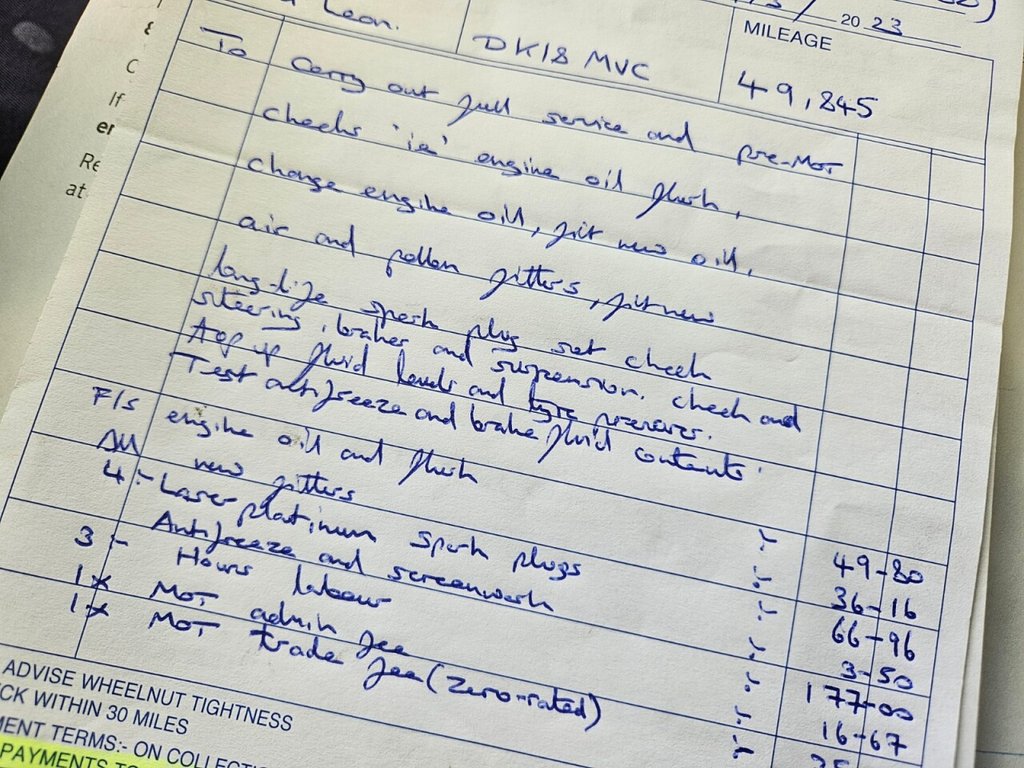 Leon.
20 23
DK18 MVC
MILEAGE
49,845
To Carry out full service and pre-MOT
checks 'ie' engine oil flush,
change engine oil, fit new oil,
air and pollen filters, fit new
long-life spark plug set check
steering, brakes and suspension. check and
top up fluid levels and tyre pressures.
Test antifreeze and brake fluid contents.
F/S engine oil and flush :- 49-80
All new filters :- 36-16
4:- Laser platinum spark plugs :- 66-96
Antifreeze and screenwash :- 3-50
3:- Hours labour :- 177-00
1x MOT admin fee :- 16-67
1x MOT trade fee (zero-rated) :-
ADVISE WHEELNUT TIGHTNESS
CK WITHIN 30 MILES
MENT TERMS:- ON COLLECTI
PAYMENTS TO
If
er
Re
at